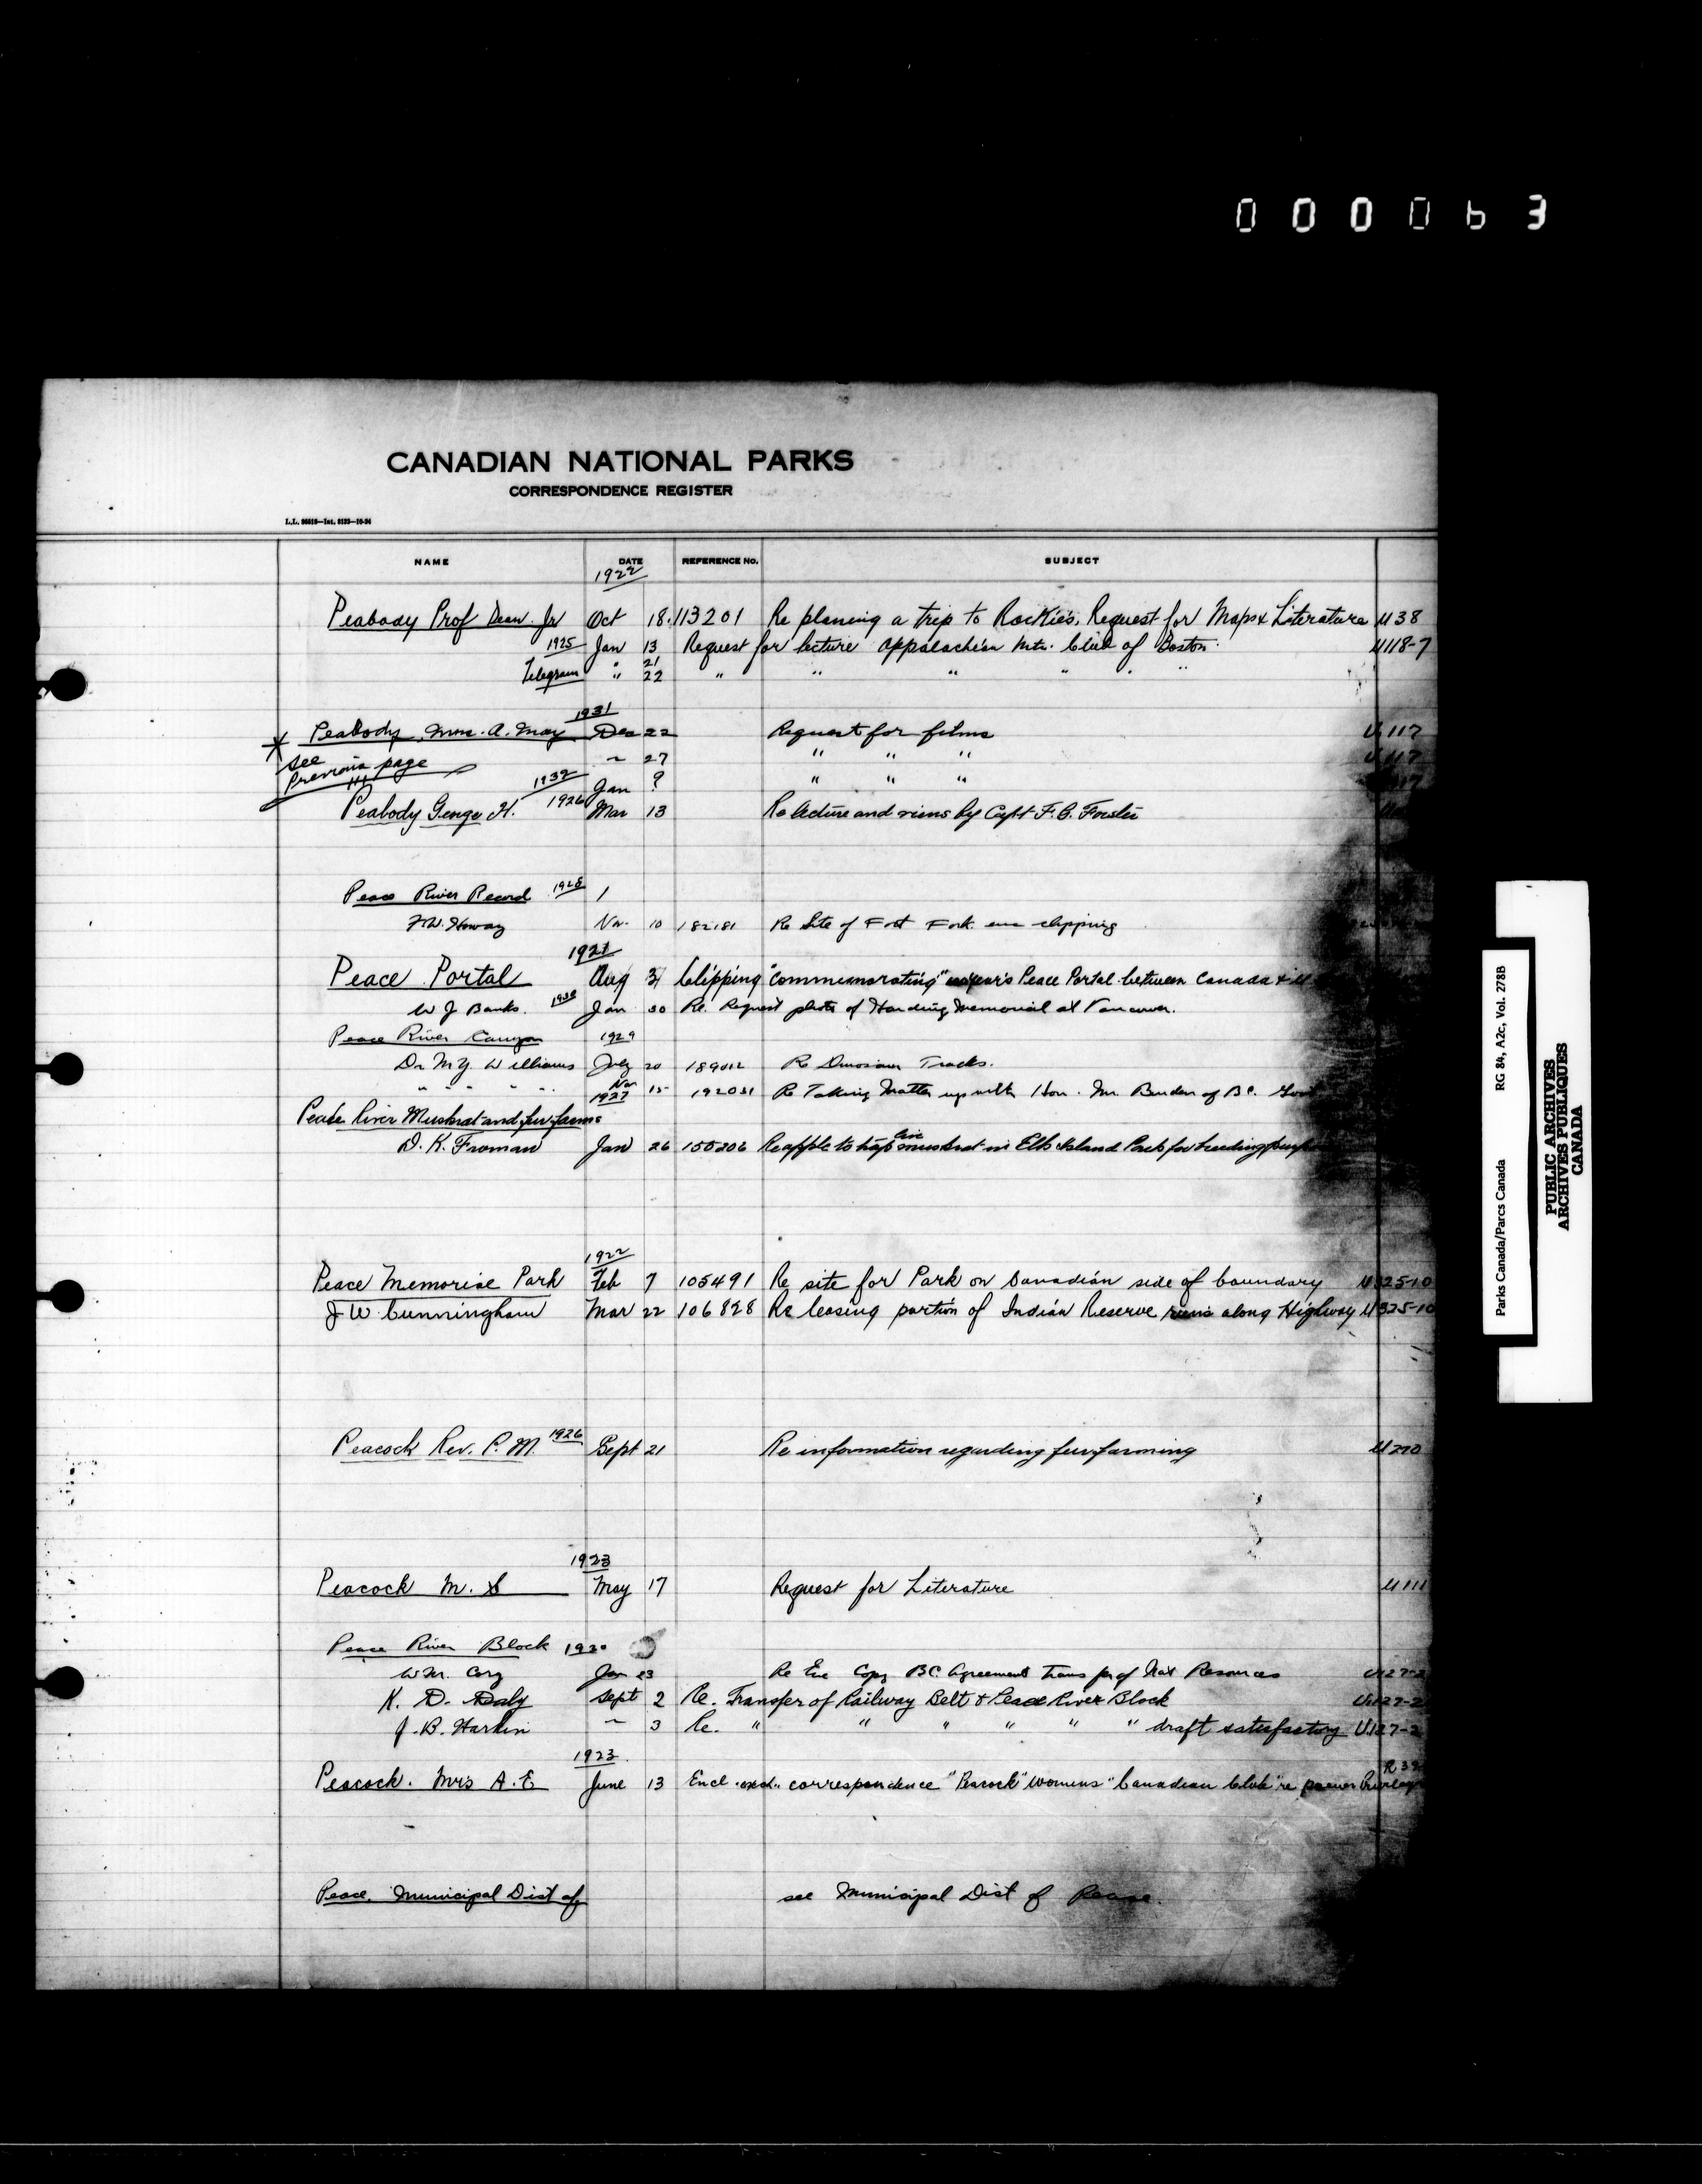 000063
CANADIAN NATIONAL PARKS
CORRESPONDENCE REGISTER
NAME DATE REFERENCE No. SUBJECT
1922
Peabody Prof Dean Jr Oct 18. 113201 Re planing a trip to Rockies. Request for Maps & Literature U 38
1925 Jan 13 Request for lecture Appalachian Mtn. Club of Boston. U118-7
21
Telegram " 22 " " " " " "
1931
Peabody, Mrs. A. May Dec 22 Request for films U.117
see ~ 27 " " " U.117
Previous page
1932 Jan ? " " " 17
Peabody George H. 1926 Mar 13 Re lecture and views by Capt F.C.
Peace River Record 1928 1
F.W. Howay Nov. 10 182181 Re Site of Fort Fork. enc clipping
1921
Peace Portal Aug 31 Clipping "commemorating" Peace Portal between Canada &
W J Banks. 1930 Jan 30 Re. Request photo of Harding Memorial at Vancouver.
Peace River Canyon 1929
Dr M.Y. Williams July 20 189012 Re Dinosaur Tracks.
" " " " Nov 15 192031 Re Taking Matter up with Hon. Mr. Burden of B.C. Govt
1927
Peace River Muskrat and fur farms
live
D. K. Froman Jan 26 155206 Re apple to trap muskrat in Elk Island Park for breeding
1922
Peace Memorial Park Feb 7 105491 Re site for Park on Canadian side of boundary U325-10
J W Cunningham Mar 22 106828 Re leasing portion of Indian Reserve along Highway U325-10
Peacock Rev. P. M. 1926 Sept 21 Re information regarding fur farming U 270
1923
Peacock M. S May 17 Request for Literature U 111
Peace River Block 1930
W.M. Cory Jan 23 Re Enc Copy BC Agreement Transfer of Nat Resources U127-2
K. D. Daly Sept 2 Re. Transfer of Railway Belt & Peace River Block U.127-2
J. B. Harkin ~ 3 Re. " " " " " " draft satisfactory U.127-2
1923. R 39
Peacock. Mrs A. E June 13 Encl. correspondence "Peacock" Womens "Canadian Club" re
Peace. Municipal Dist of see Municipal Dist of Peace.
Parks Canada/Parcs Canada RG 84, A2c, Vol. 278B
PUBLIC ARCHIVES
ARCHIVES PUBLIQUES
CANADA